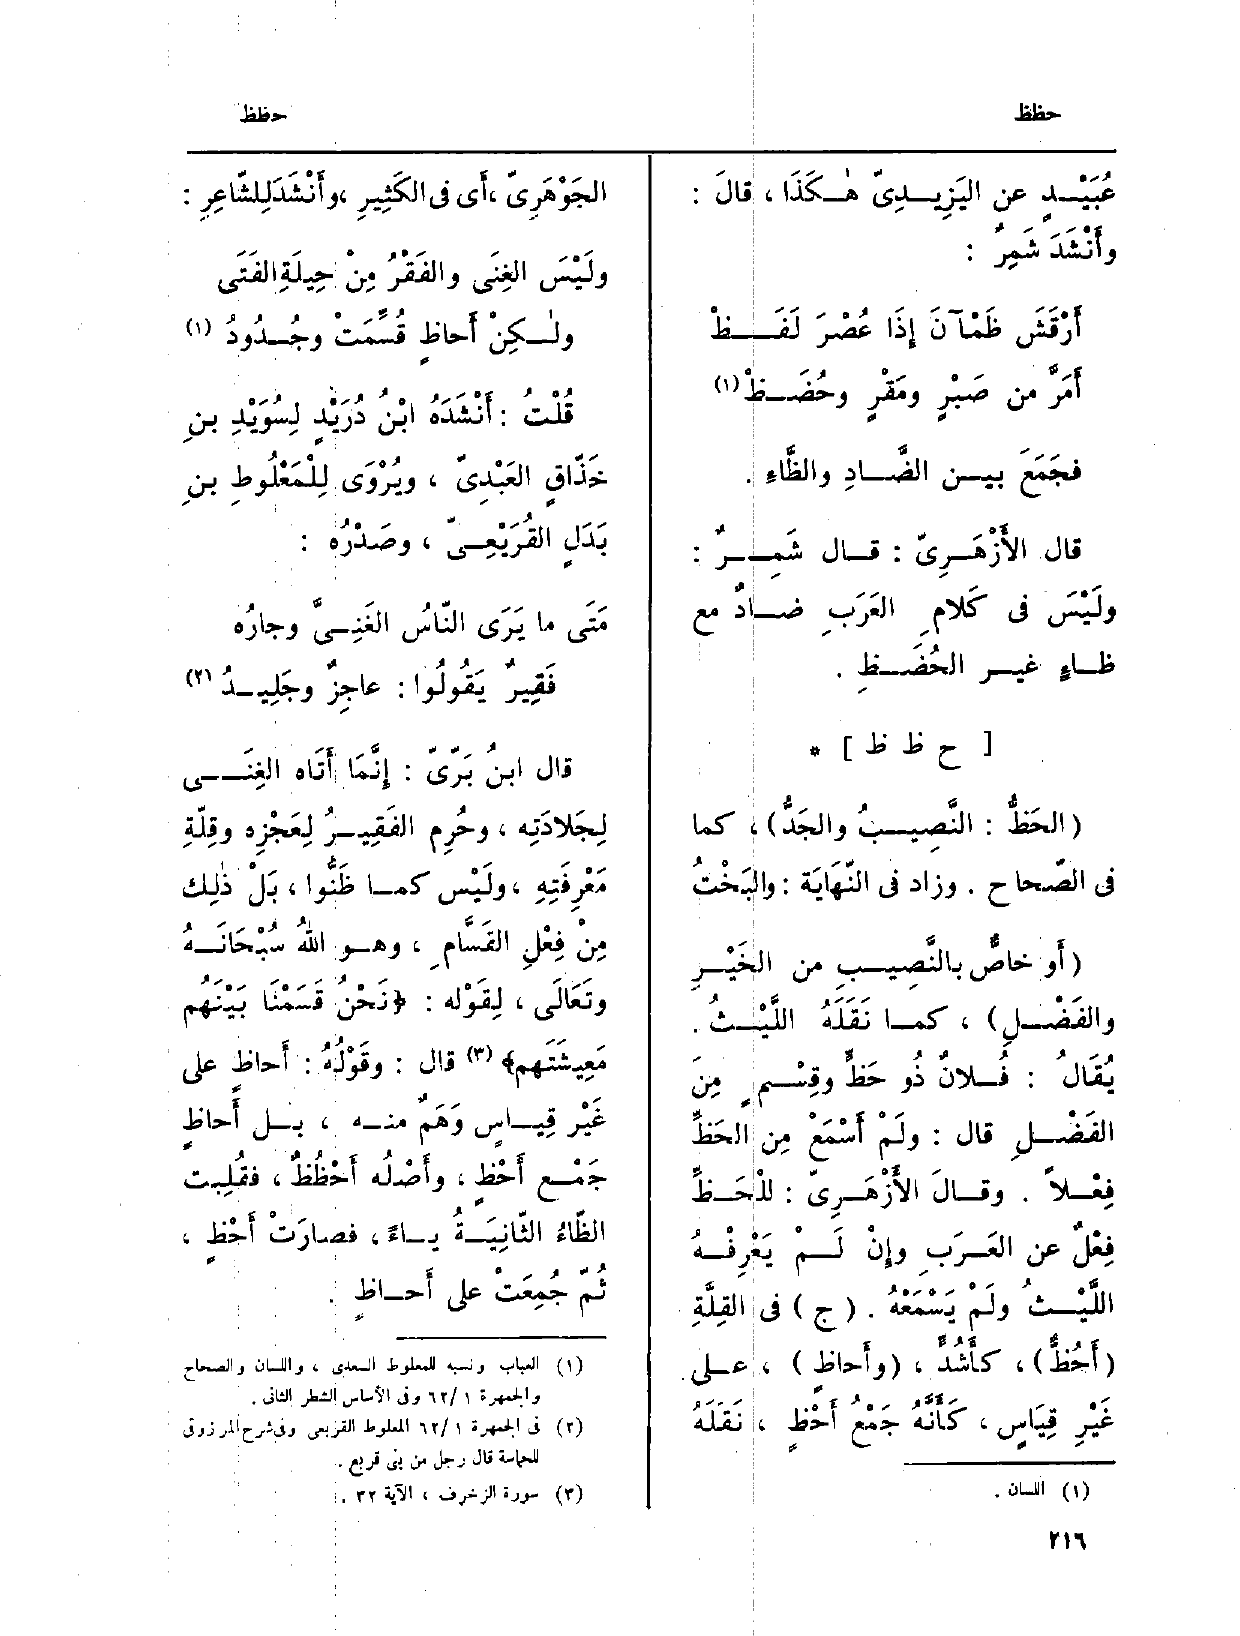 حظظ
حظظ
عُبَيْـدٍ عن اليَزِيـدِىّ هٰـكَذَا ، قالَ :
وأَنْشَدَ شَمِرٌ :
أَرْقَشَ ظَمْآنَ إِذَا عُصْرَ لَفَـظْ
أَمَرَّ من صَبْرٍ ومَقْرٍ وحُضَـظْ (١)
فجَمَعَ بيـن الضَّـادِ والظَّاءِ .
قال الأَزْهَـرِىّ : قـال شَمِـرٌ :
ولَيْسَ فى كَلامِ العَرَبِ ضـادٌ مع
ظـاءٍ غيـر الحُضَـظِ .
[ ح ظ ظ ] *
(الحَظُّ : النَّصِيـبُ والجَدُّ) ، كما
فى الصّحاح . وزاد فى النِّهَايَة : والبَخْتُ
(أو خاصٌّ بالنَّصِيـبِ من الخَيْـرِ
والفَضْـلِ) ، كمـا نَقَلَهُ اللَّيْـثُ .
يُقَالُ : فُـلانٌ ذُو حَظٍّ وقِسْـمٍ مِنَ
الفَضْـلِ قال : ولَمْ أَسْمَعْ مِن الحَظِّ
فِعْـلاً . وقـالَ الأَزْهَـرِىّ : للْحَـظِّ
فِعْلٌ عن العَـرَبِ وإِنْ لَـمْ يَعْرِفْـهُ
اللَّيْـثُ ولَمْ يَسْمَعْهُ . (ج) فى القِلَّةِ
(أَحُظٌّ) ، كَأَشُدٍّ ، (وأَحاظٍ) ، عـلى
غَيْرِ قِيَاسٍ ، كَأَنَّهُ جَمْعُ أَحْظٍ ، نَقَلَهُ
(١) اللسان .
٢١٦
الجَوْهَرِىّ ، أى فى الكَثِيرِ ، وأَنْشَدَ لِلشَّاعِرِ :
ولَيْسَ الغِنَى والفَقْرُ مِنْ حِيلَةِ الفَتَى
ولٰـكِنْ أَحاظٍ قُسِّمَتْ وجُـدُودُ (١)
قُلْتُ : أَنْشَدَهُ ابْنُ دُرَيْدٍ لِسُوَيْدِ بنِ
خَذّاقٍ العَبْدِىّ ، ويُرْوَى لِلْمَعْلُوطِ بنِ
بَدَلٍ القُرَيْعِـىّ ، وصَدْرُه :
مَتَى ما يَرَى النّاسُ الغَنِـىَّ وجارُه
فَقِيرٌ يَقُولُوا : عاجِزٌ وجَلِيـدُ (٢)
قال ابنُ بَرِّىّ : إِنَّمَا أَتَاه الغِنَـى
لِجَلادَتِه ، وحُرِم الفَقِيـرُ لِعَجْزِه وقِلَّةِ
مَعْرِفَتِهِ ، ولَيْس كمـا ظَنُّوا ، بَلْ ذٰلِك
مِنْ فِعْلِ القَسَّامِ ، وهـو اللهُ سُبْحَانَـهُ
وتَعَالَى ، لِقَوْله : ﴿نَحْنُ قَسَمْنَا بَيْنَهُم
مَعِيشَتَهم﴾ (٣) قال : وقَوْلُهُ : أَحاظٍ على
غَيْرِ قِيـاسٍ وَهَمٌ منـه ، بـل أَحاظٍ
جَمْـع أَحْظٍ ، وأَصْلُه أَحْظُظٌ ، فقُلِبت
الظّاءُ الثّانِيَـةُ يـاءً ، فصارَتْ أَحْظٍ ،
ثُمّ جُمِعَتْ على أَحـاظٍ .
(١) العباب ونسبه للمعلوط السعدى ، واللسان والصحاح
والجمهرة ١ /٦٢ وفى الأساس الشطر الثانى .
(٢) فى الجمهرة ١ /٦٢ المعلوط القريعى وفى شرح المرزوق
للحماسة قال رجل من بنى قريع .
(٣) سورة الزخرف ، الآية ٣٢ .